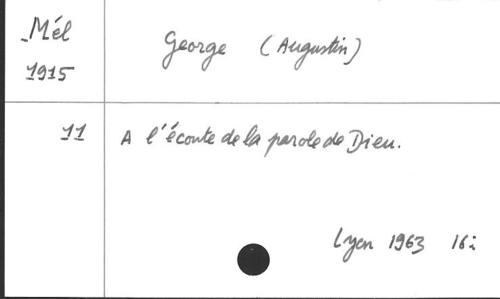 Mél George (Augustin)
1915
11 A l'écoute de la parole de Dieu.
Lyon 1963 16i